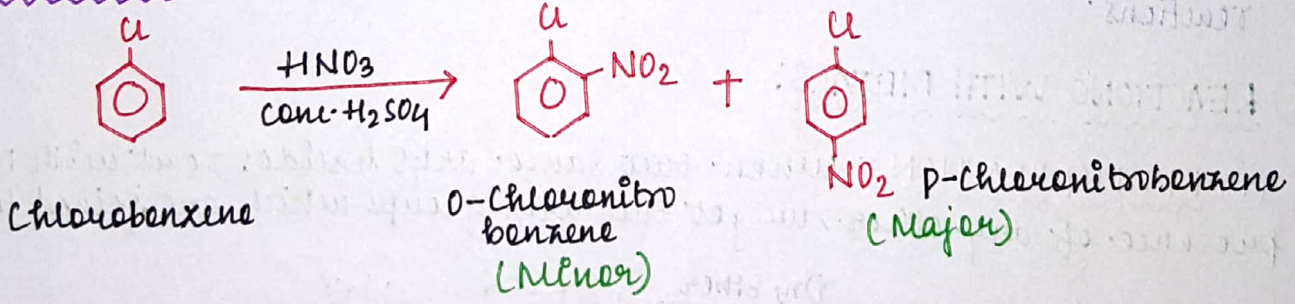 Cl
Cl
Cl
HNO3
conc. H2SO4
NO2
+
NO2
Chlorobenzene
O-Chloronitro
benzene
(Minor)
p-Chloronitrobenzene
(Major)